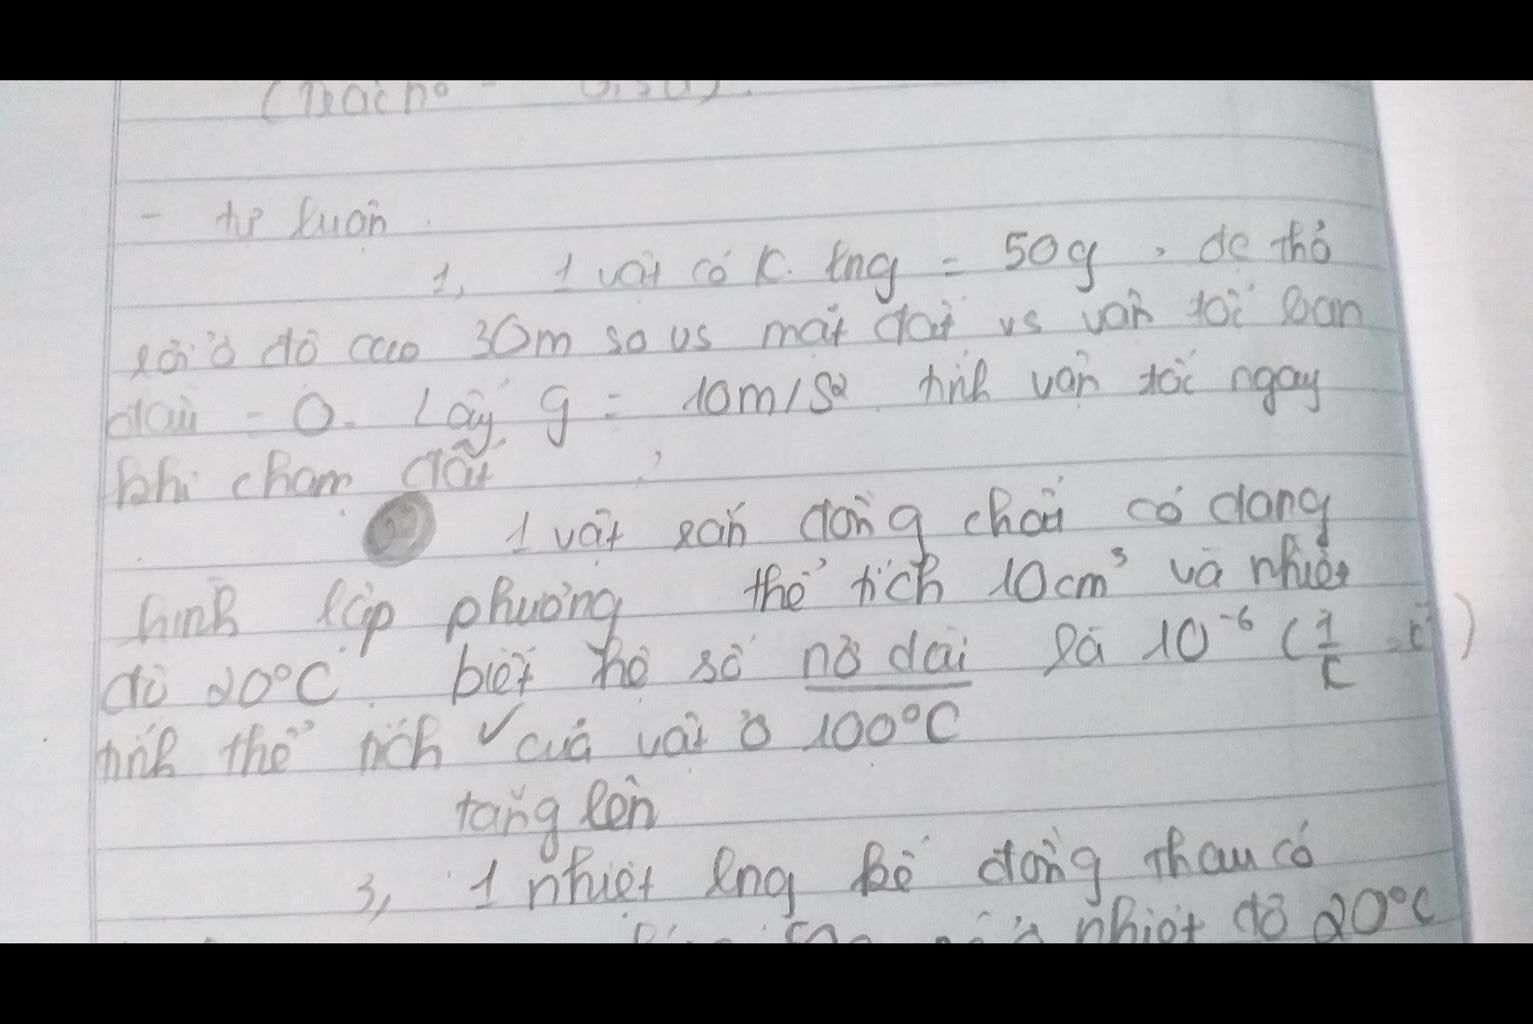 - tự luận
1, 1 vật có k. lng = 50g, dc thả
rơi ở độ cao 30m so vs mặt đất vs vận tốc ban
đầu = 0. Lấy g = 10m/s2. tính vận tốc ngay
khi chạm đất
1 vật rắn đồng chất có dạng
hình lập phương thể tích 10cm³ và nhiệt
độ 20°C. biết hệ số nở dài là 10⁻⁶ (1/K
tính thể tích của vật ở 100°C
tăng lên
3, 1 nhiệt lng kế đồng thau có
nhiệt độ 20°C